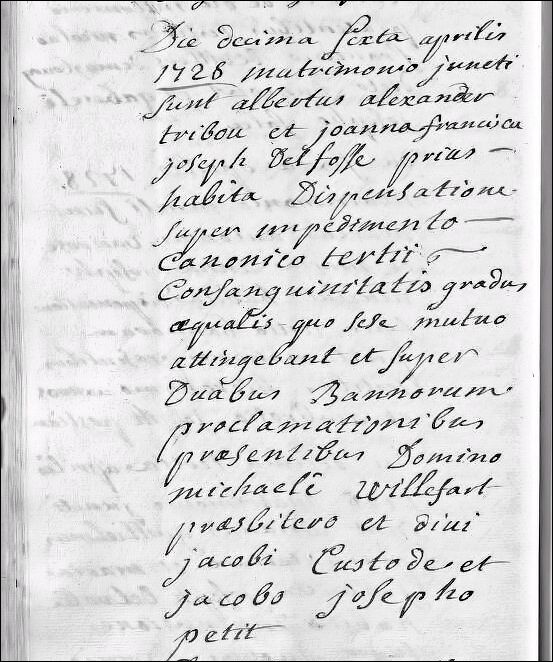 Die decima sexta aprilis
1728 matrimonio juncti
sunt albertus alexander
tribou et joanna francisca
joseph Delfosse prius
habita Dispensatione
super impedimento
Canonico tertii
Consanguinitatis gradus
æqualis quo sese mutuo
attingebant et super
Duabus Bannorum
proclamationibus
præsentibus Domino
michaele Willefart
præsbitero et divi
jacobi Custode et
jacobo josepho
petit